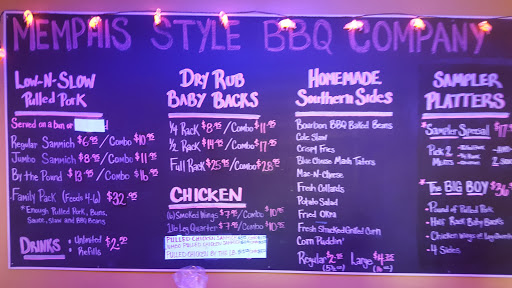 MEMPHIS STYLE BBQ COMPANY
LOW-N-SLOW
Pulled Pork
Served on a bun or
Regular Sammich $6.95/Combo $10.95
Jumbo Sammich $8.95/Combo $11.95
By the Pound $13.95/Combo $16.95
Family Pack (Feeds 4-6) $32.95
*Enough Pulled Pork, Buns,
Sauce, Slaw and BBQ Beans
DRINKS: Unlimited Refills $2.25
DRY RUB
BABY BACKS
1/4 Rack $8.95/Combo $11.95
1/2 Rack $14.95/Combo $17.95
Full Rack $25.95/Combo $28.95
CHICKEN
(6) Smoked Wings $7.95/Combo $10.95
Leg Quarter $7.95/Combo $10.95
PULLED CHICKEN
PULLED CHICKEN BY THE LB
HOMEMADE
Southern Sides
Bourbon BBQ Baked Beans
Cole Slaw
Crispy Fries
Blue Cheese Mash Taters
Mac-N-Cheese
Fresh Collards
Potato Salad
Fried Okra
Fresh Smoked Grilled Corn
Corn Puddin'
Regular $2.75 Large $4.35
SAMPLER
PLATTERS
*Sampler Special $17
Pick 2
Meats
*The BIG BOY $36
-Pound of Pulled Pork
-Half Rack Baby Backs
-Chicken Wings or Leg Quarters
-4 Sides